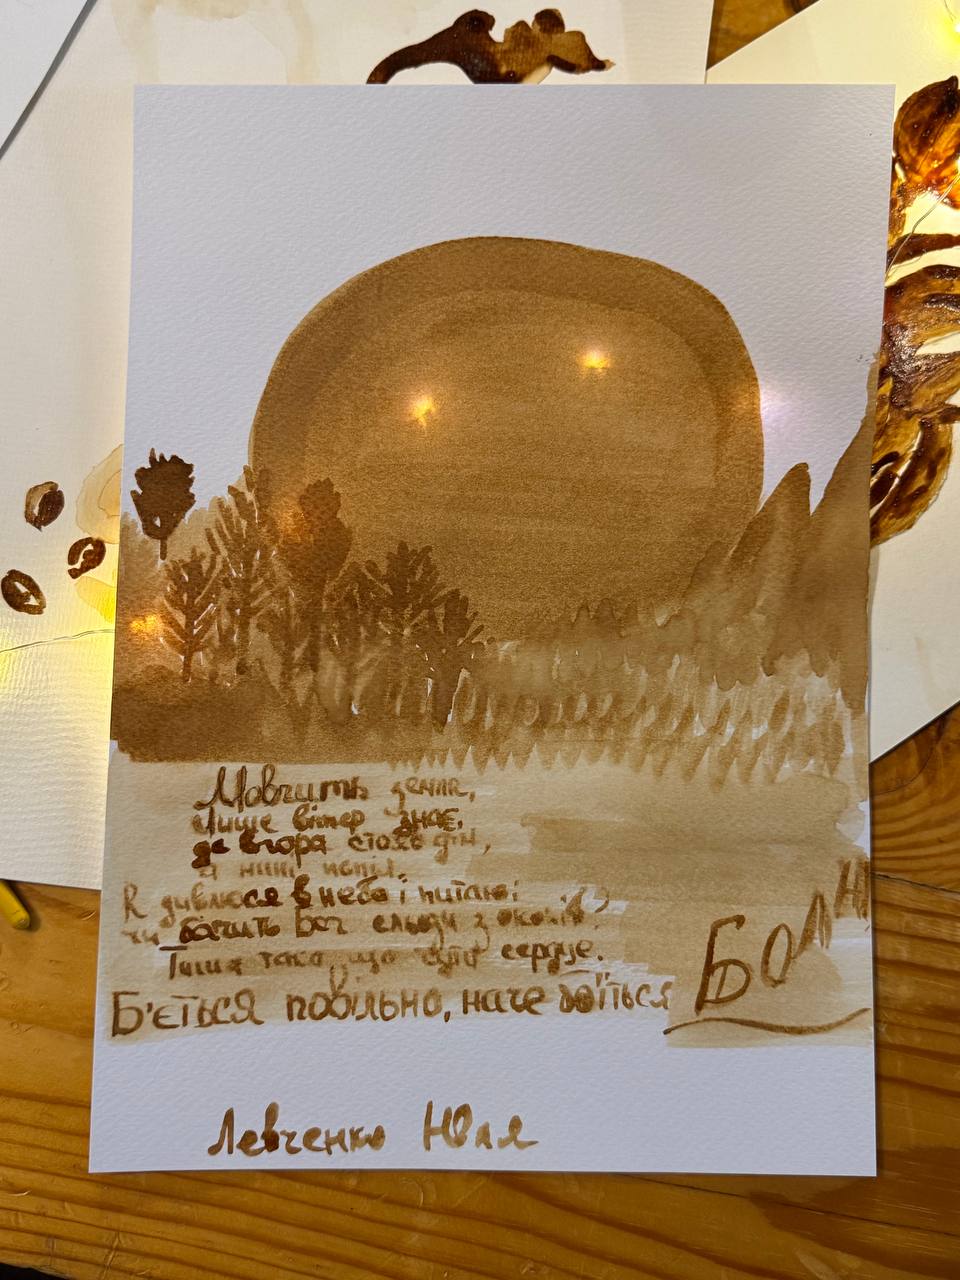 Мовчить земля,
Лише вітер знає,
де вгора стало дім,
а нині попіл.
Я дивлюся в небо і питаю:
чи бачить Бог сльози з окопів?
Тиша така, що чути серце.
Б'ється повільно, наче боїться
Левченко Юля